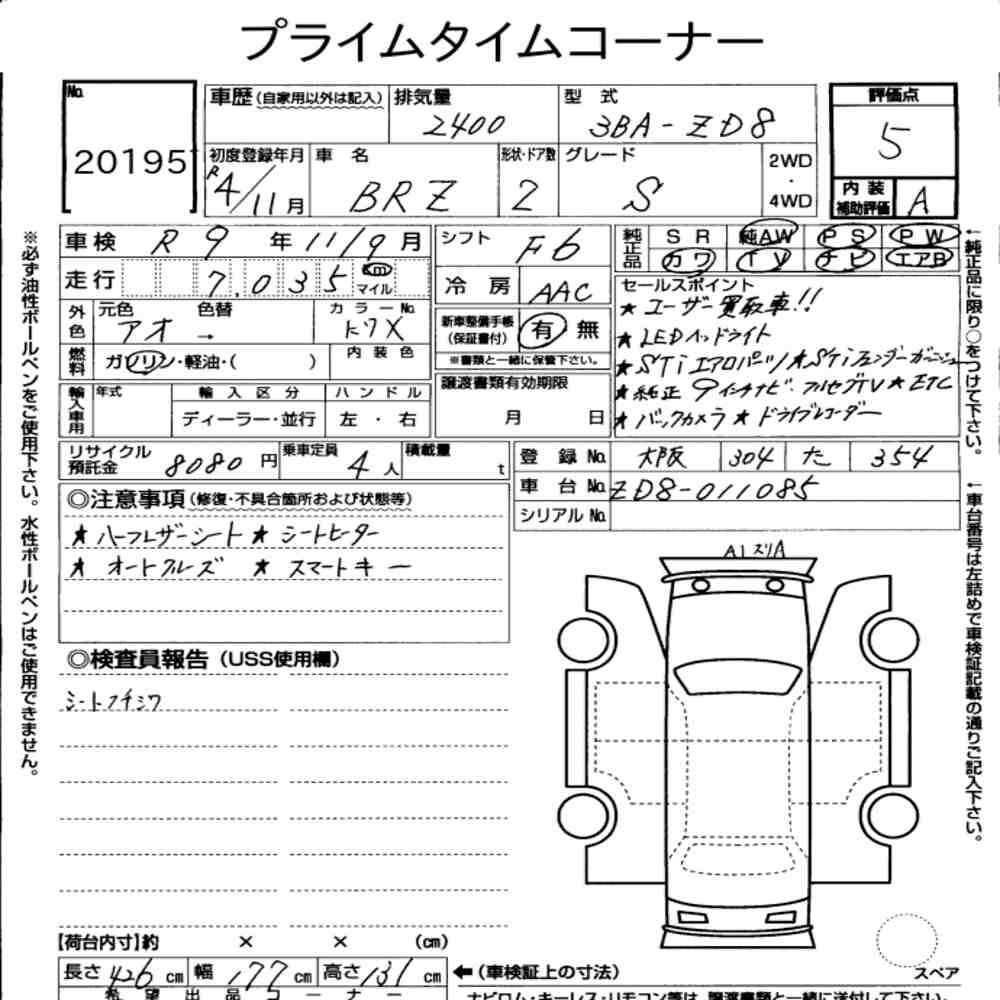 プライムタイムコーナー
No.
20195
車歴(自家用以外は記入)
排気量
2400
型 式
3BA-ZD8
評価点
5
初度登録年月
R4/11月
車 名
BRZ
形状・ドア数
2
グレード
S
2WD
・
4WD
内装
補助評価
A
車検 R9年11/9月
シフト
F6
純正品
SR 純AW PS PW
カワ TV ナビ エアB
走行 7,035 Km マイル
冷房
AAC
外色
元色
アオ →
色替
カラーNo.
K7X
新車整備手帳
(保証書付)
有 無
※書類と一緒に保管下さい。
燃料
ガソリン・軽油・( )
内装色
セールスポイント
★ユーザー買取車!!
★LEDヘッドライト
★STiエアロパーツ/★STiフェンダーガーニッシュ
★純正9インチナビ・フルセグTV★ETC
★バックカメラ★ドライブレコーダー
輸入車用
年式
輸入区分
ディーラー・並行
ハンドル
左・右
譲渡書類有効期限
月 日
リサイクル
預託金
8080円
乗車定員
4人
積載量
t
登録No. 大阪 304 た 354
車台No. ZD8-011085
シリアルNo.
◎注意事項(修復・不具合箇所および状態等)
★ハーフレザーシート★シートヒーター
★オートクルーズ ★スマートキー
◎検査員報告(USS使用欄)
シートフチシワ
A1スリA
【荷台内寸】約 × × (cm)
長さ426cm 幅177cm 高さ131cm
←(車検証上の寸法)
スペア
希望出品コーナー
ナビロム・キーレス・リモコン等は、譲渡書類と一緒に送付して下さい。
※必ず油性ボールペンをご使用下さい。水性ボールペンはご使用できません。
←純正品に限り○をつけて下さい。
←車台番号は左詰めで車検証記載の通りご記入下さい。